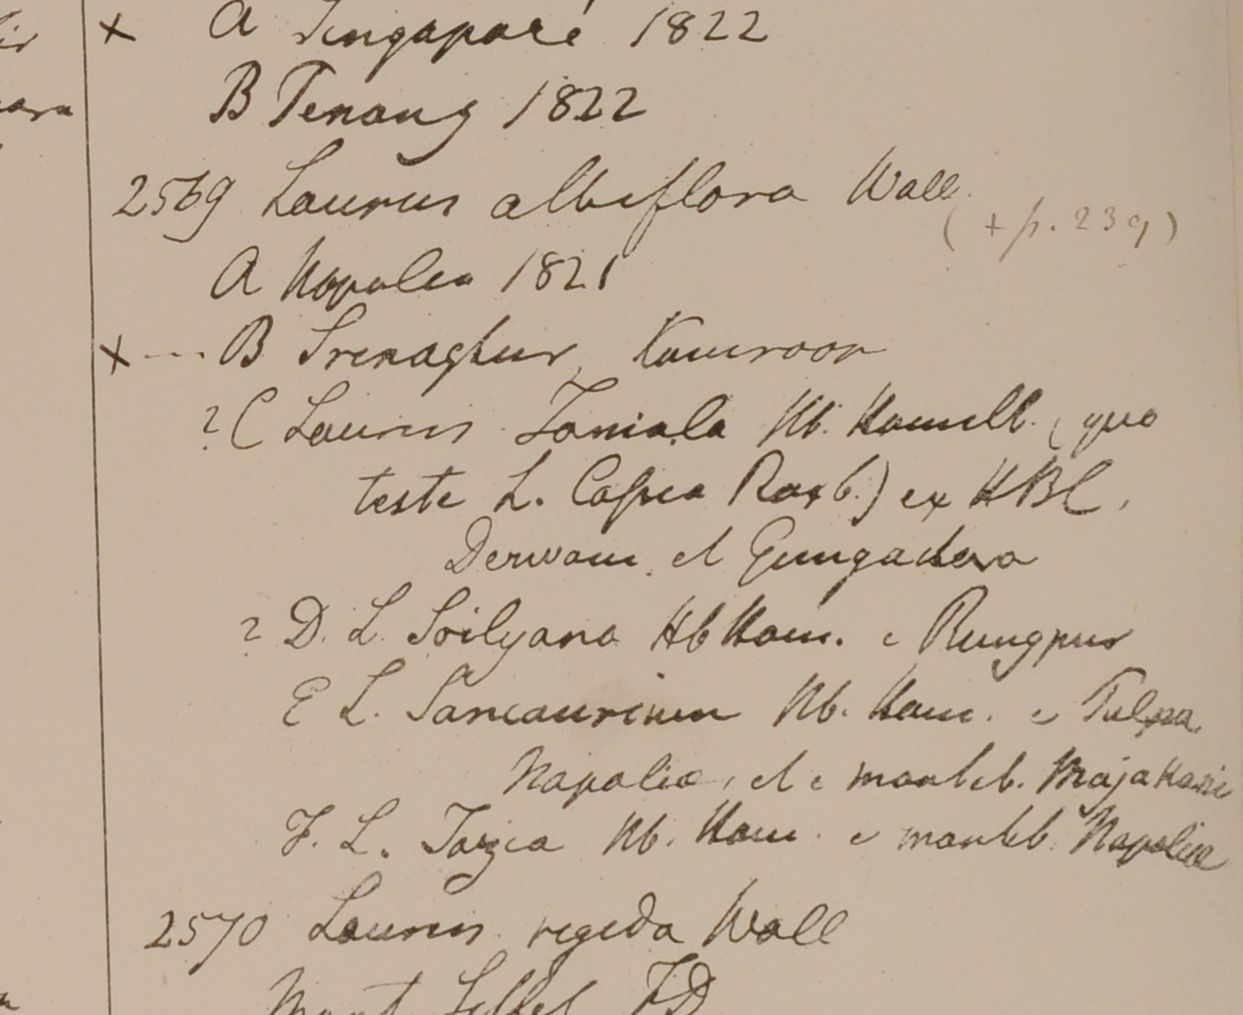 × A Singapore 1822
B Penang 1822
2569 Laurus albiflora Wall.
(+ p. 239)
A Napalia 1821
× B Srenaghur, Kamroon
? C Laurus Jamala Hb. Hamilt. (quo
teste L. Cassia Roxb.) ex HBC.
et Gungadora
? D. L. Soilyana Hb Ham. e Rungpur
E L. Sancaurium Hb. Ham. e
Napaliæ, et e montib.
F. L. Tazia Hb. Ham. e montib. Napaliæ
2570 Laurus rigida Wall
Mont Sillet FD